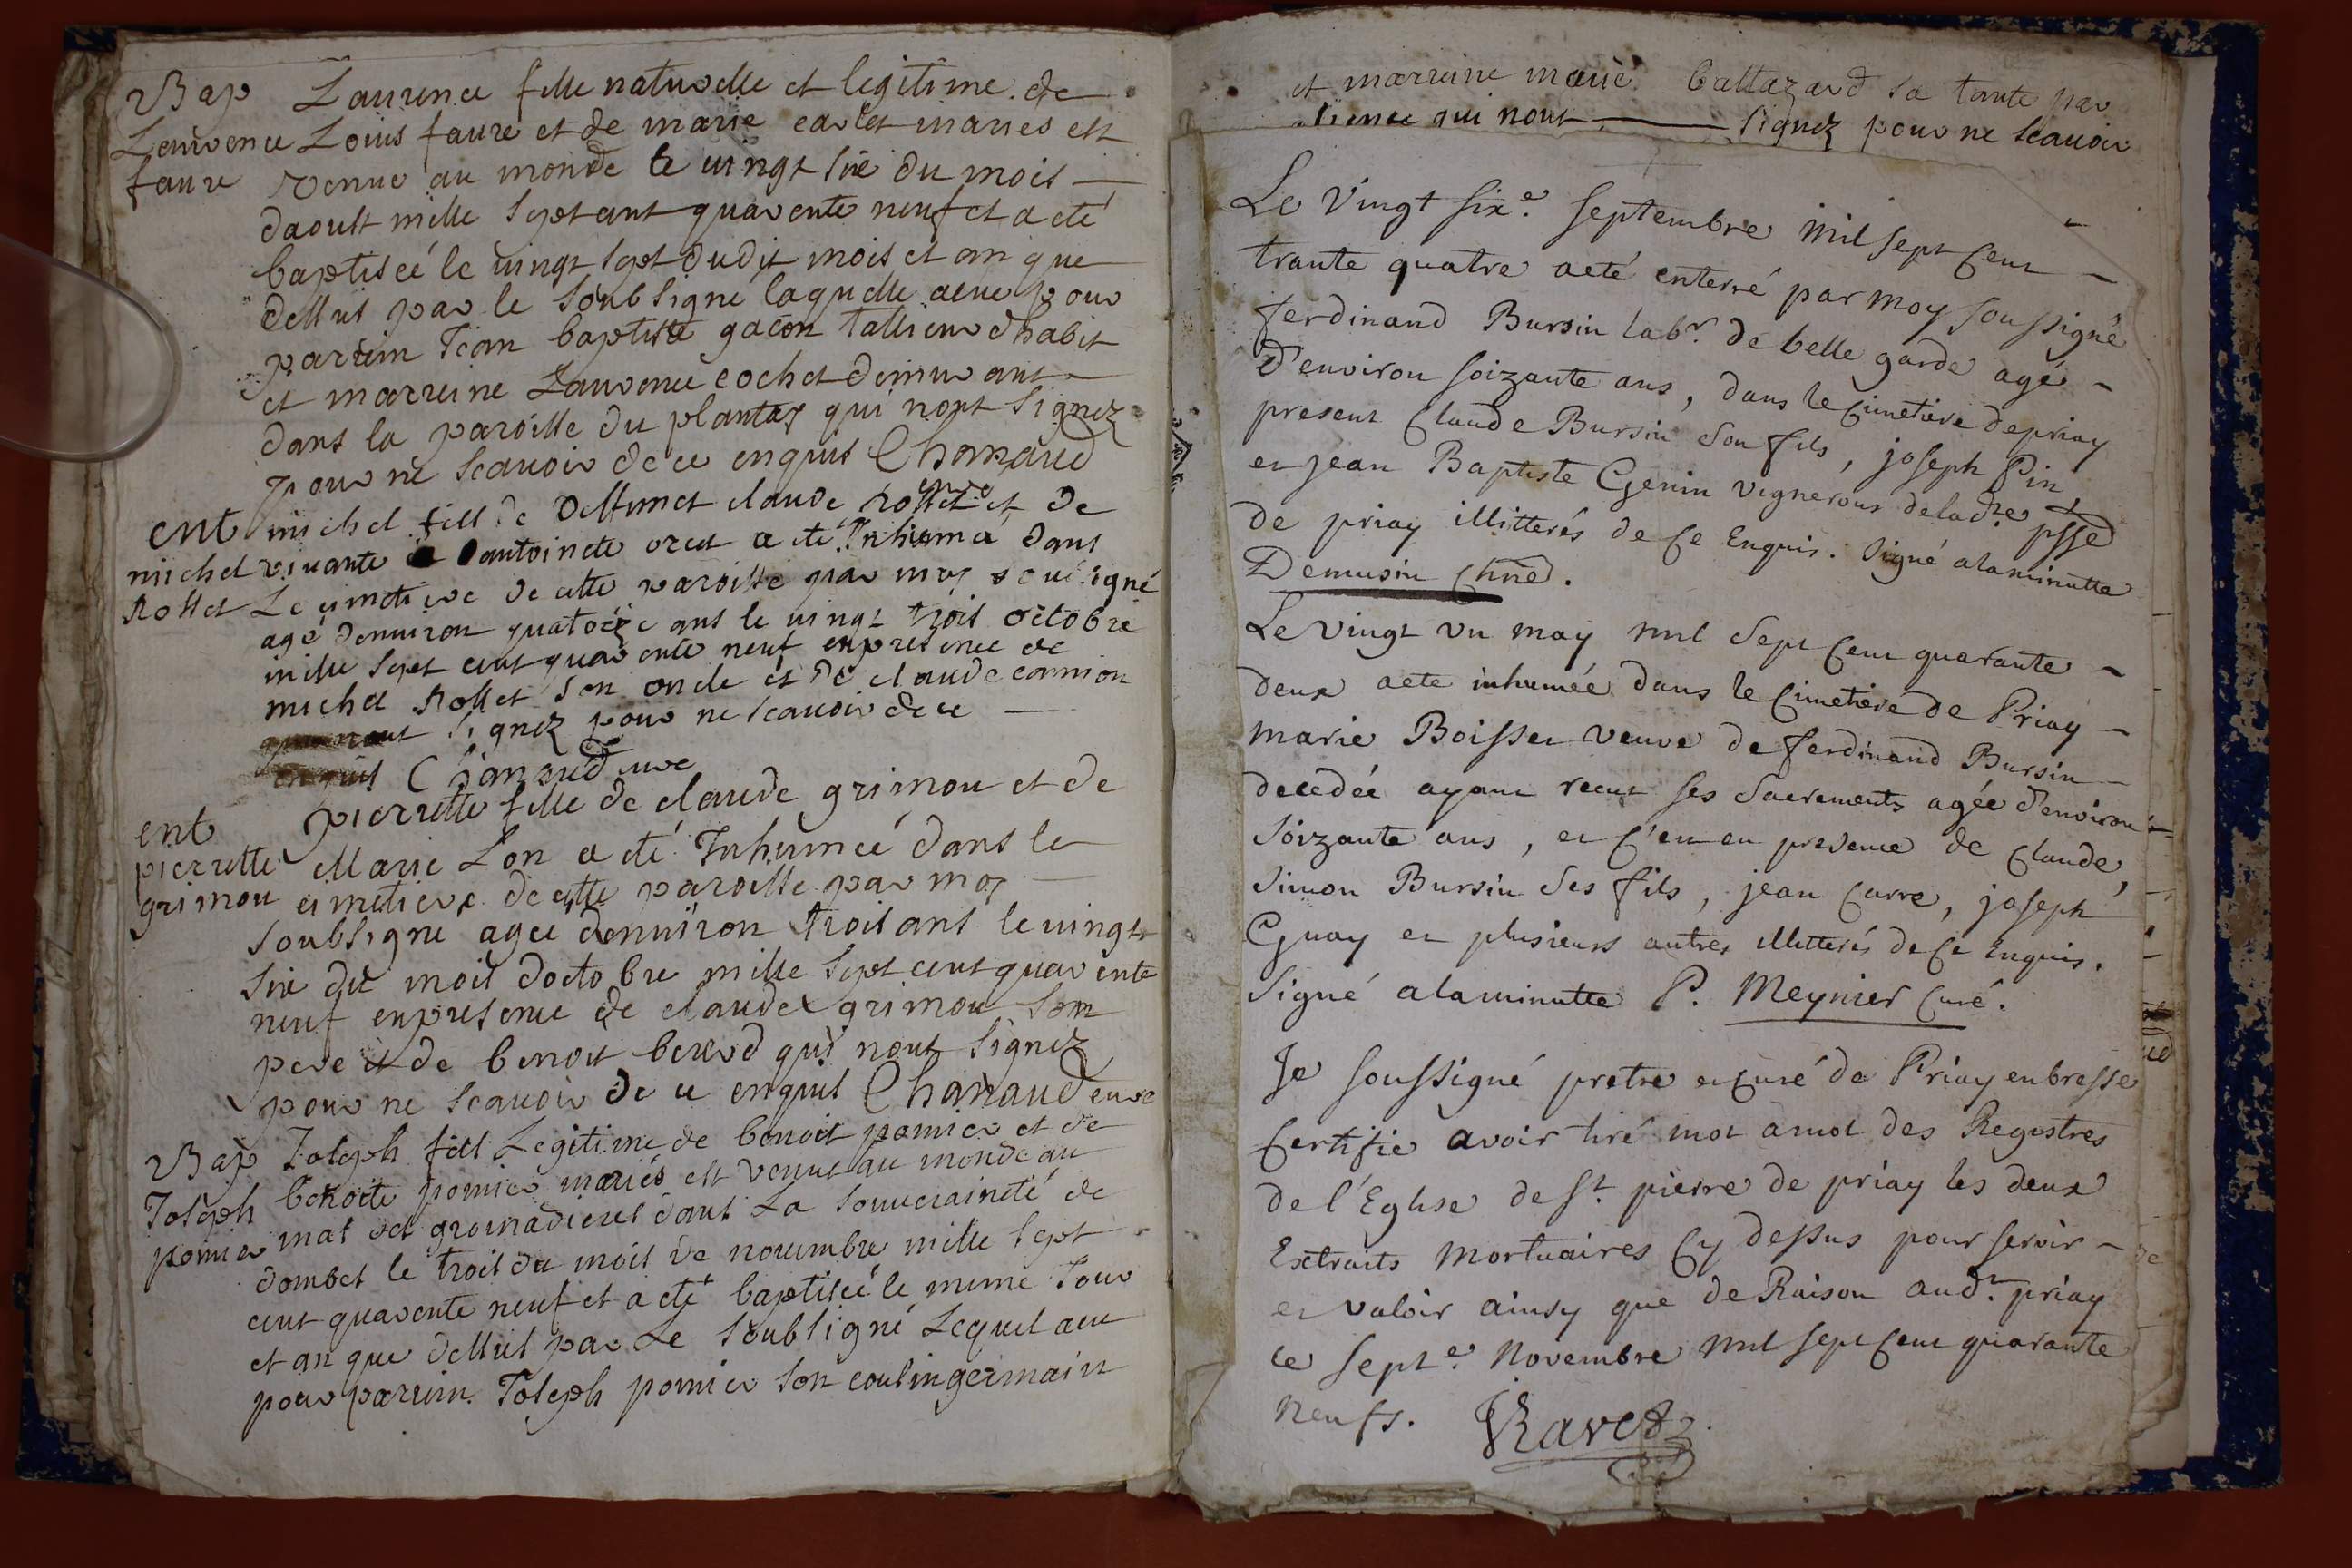 Bap Laurence fille naturelle et legitime de
Laurence Louis faure et de marie carlet maries est
faure venue au monde le vingt six du mois
daoust mille sept cent quarente neuf et a eté
baptiseé le vingt sept dudit mois et an que
dessus par le soubsigné laquelle a eue pour
parrin Jean baptiste gacon tallieur dhabit
et marreine Laurence cochet demurant
dans la paroisse du plantay qui nont signez
pour ne scavoir de ce enquis Chanaud
curé
ent michel fils de deffunct claude rosset et de
michel vivante antoinete a eté Inhumé dans
Rosset Le cimetiere de cette paroisse par moy soubsigné
agé denviron quatorze ans le vingt trois octobre
mille sept cent quarente neuf en presence de
michel Rosset son oncle et de claude
qui nont signez pour ne scavoir de ce
enquis Chanaud cure
ent pierrette fille de claude grimon et de
pierrette Marie Lon a eté Inhumeé dans le
grimon cimetiere de cette paroisse par moy
soubsigne ageé denviron trois ans le vingt
six du mois doctobre mille sept cent quarente
neuf en presence de claude grimon son
pere et de benoit berod qui nont signez
pour ne scavoir de ce enquis Chanaud cure
Bap Joseph fils Legitime de benoit pomier et de
Joseph benoite pomier mariés est venue au monde au
pomier mas des gromadieres dans La souveraineté de
dombes le trois du mois de novembre mille sept
cent quarente neuf et a eté baptiseé le meme Jour
et an que dessus par Le soubsigné Lequel a eu
pour parrin Joseph pomier son cousin germain
et marreine marie baltazard sa tante par
qui nont signez pour ne scavoir
Le Vingt six.e septembre mil sept cent
trante quatre a eté enterré par moy soussigné
ferdinand Bursin lab.r de belle garde agé
d'environ soizante ans, dans le Cimetiere de priay
present Claude Bursin son fils, joseph Pin,
et jean Baptiste Genin vignerons de lad.te psse
de priay illitterés de ce Enquis. Signé a la minutte
Demusin
Le vingt un may mil sept cent quarante
deux a ete inhumée dans le Cimetiere de Priay
marie Boisset veuve de ferdinand Bursin
decedée ayant recut ses Sacrements agée d'environ
soizante ans, et c'en en presence de Claude,
Simon Bursin ses fils, jean Carre, joseph
Guay et plusieurs autres illitterés de ce Enquis.
Signé a la minutte P. Meynier Curé.
Je soussigné pretre et Curé de Priay en bresse
Certifie avoir tiré mot a mot des Registres
de l'Eglise de St. pierre de priay les deux
Extraits mortuaires Cy dessus pour servir
et valoir ainsy que de Raison aud.t priay
ce sept.e Novembre mil sept cent quarante
neufs. Ravet